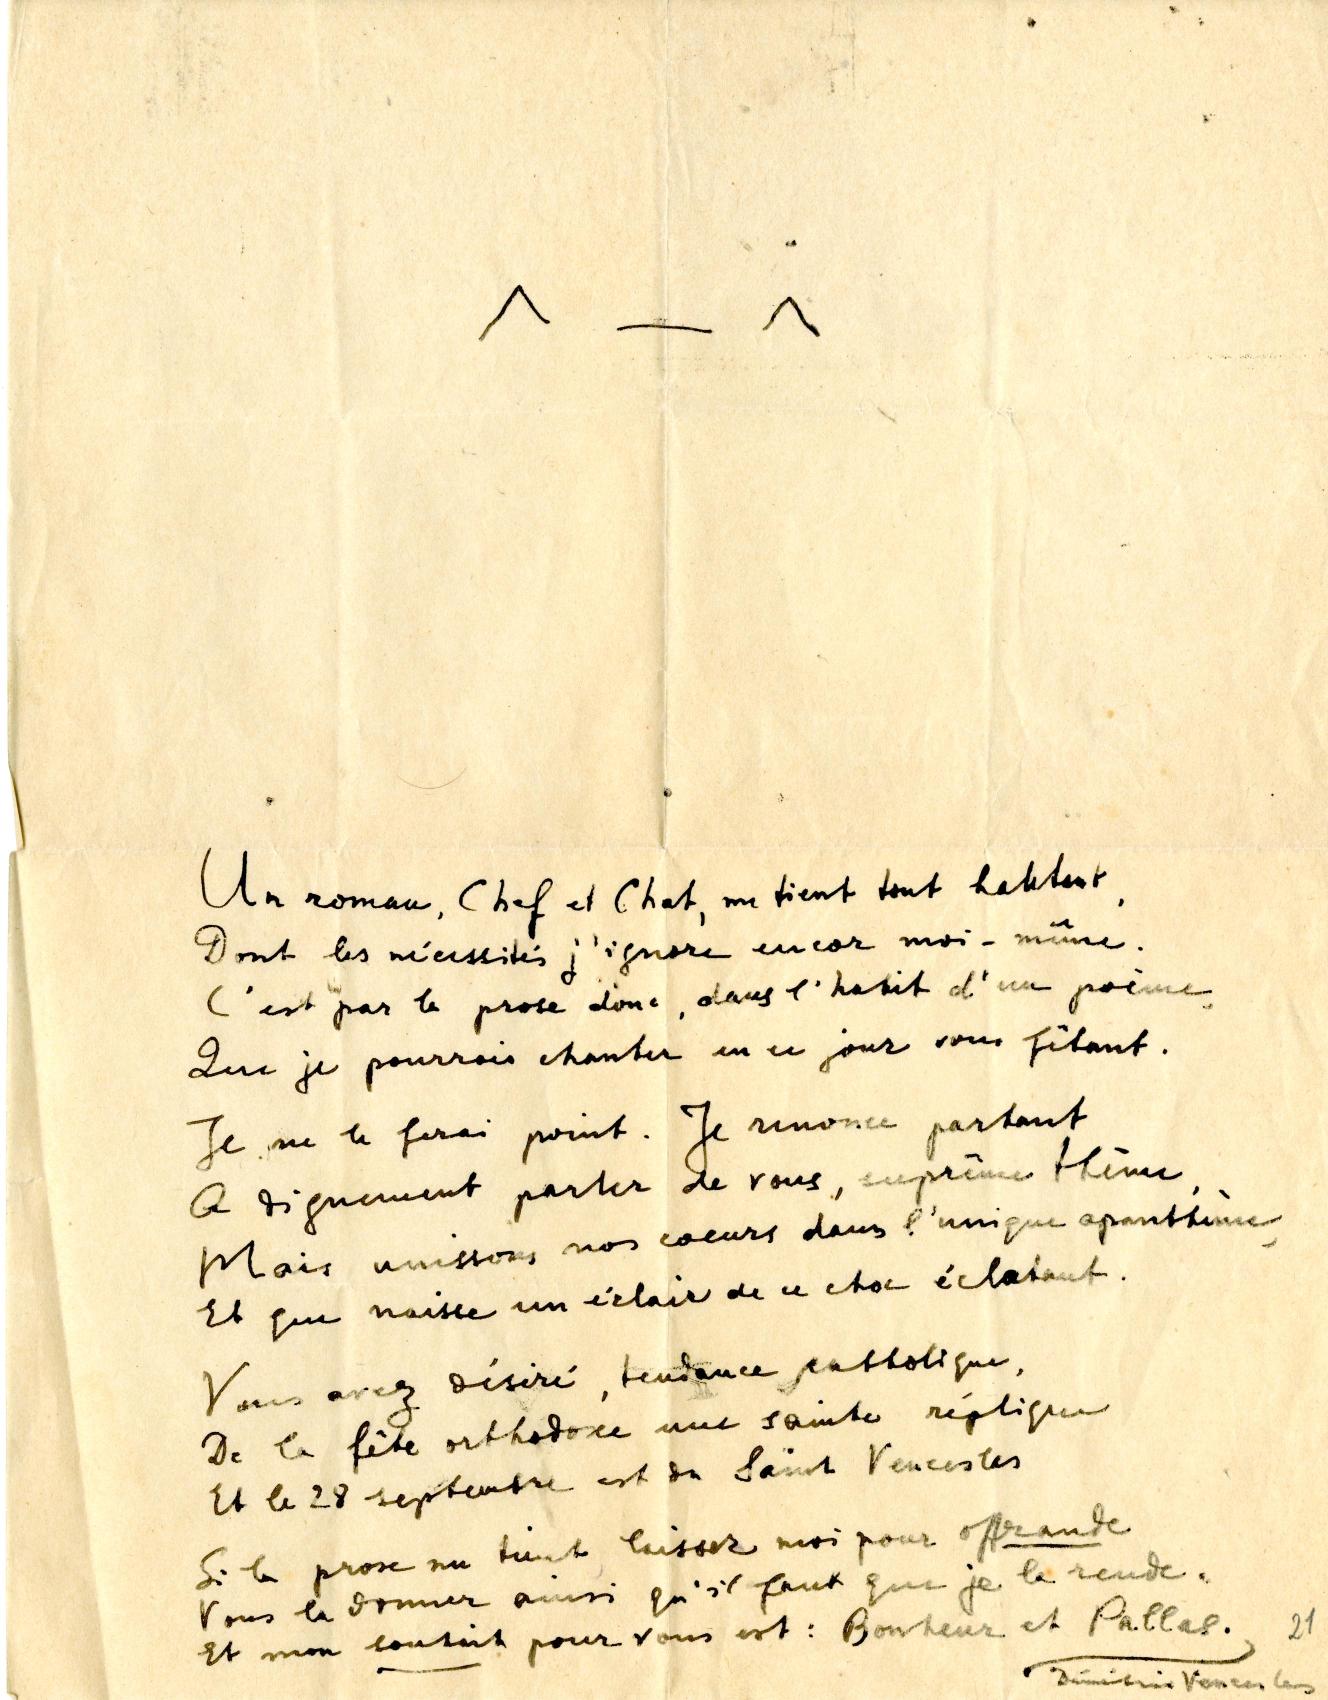 Un roman, Chef et Chat, me tient tout haletant,
Dont les nécessités j'ignore encor moi-même.
C'est par la prose donc, dans l'habit d'un poème,
Que je pourrais chanter en ce jour vous fêtant.
Je ne le ferai point. Je renonce partant
A dignement parler de vous, suprême thème,
Mais unissons nos coeurs dans l'unique apanthème,
Et que naisse un éclair de ce choc éclatant.
Vous avez désiré, tendance catholique,
De la fête orthodoxe une sainte réplique
Et le 28 septembre est du Saint Venceslas
Si la prose me tient, laissez moi pour offrande
Vous la donner ainsi qu'il faut que je la rende.
Et mon souhait pour vous est : Bonheur et Pallas.
21
Dimitrie Venceslas